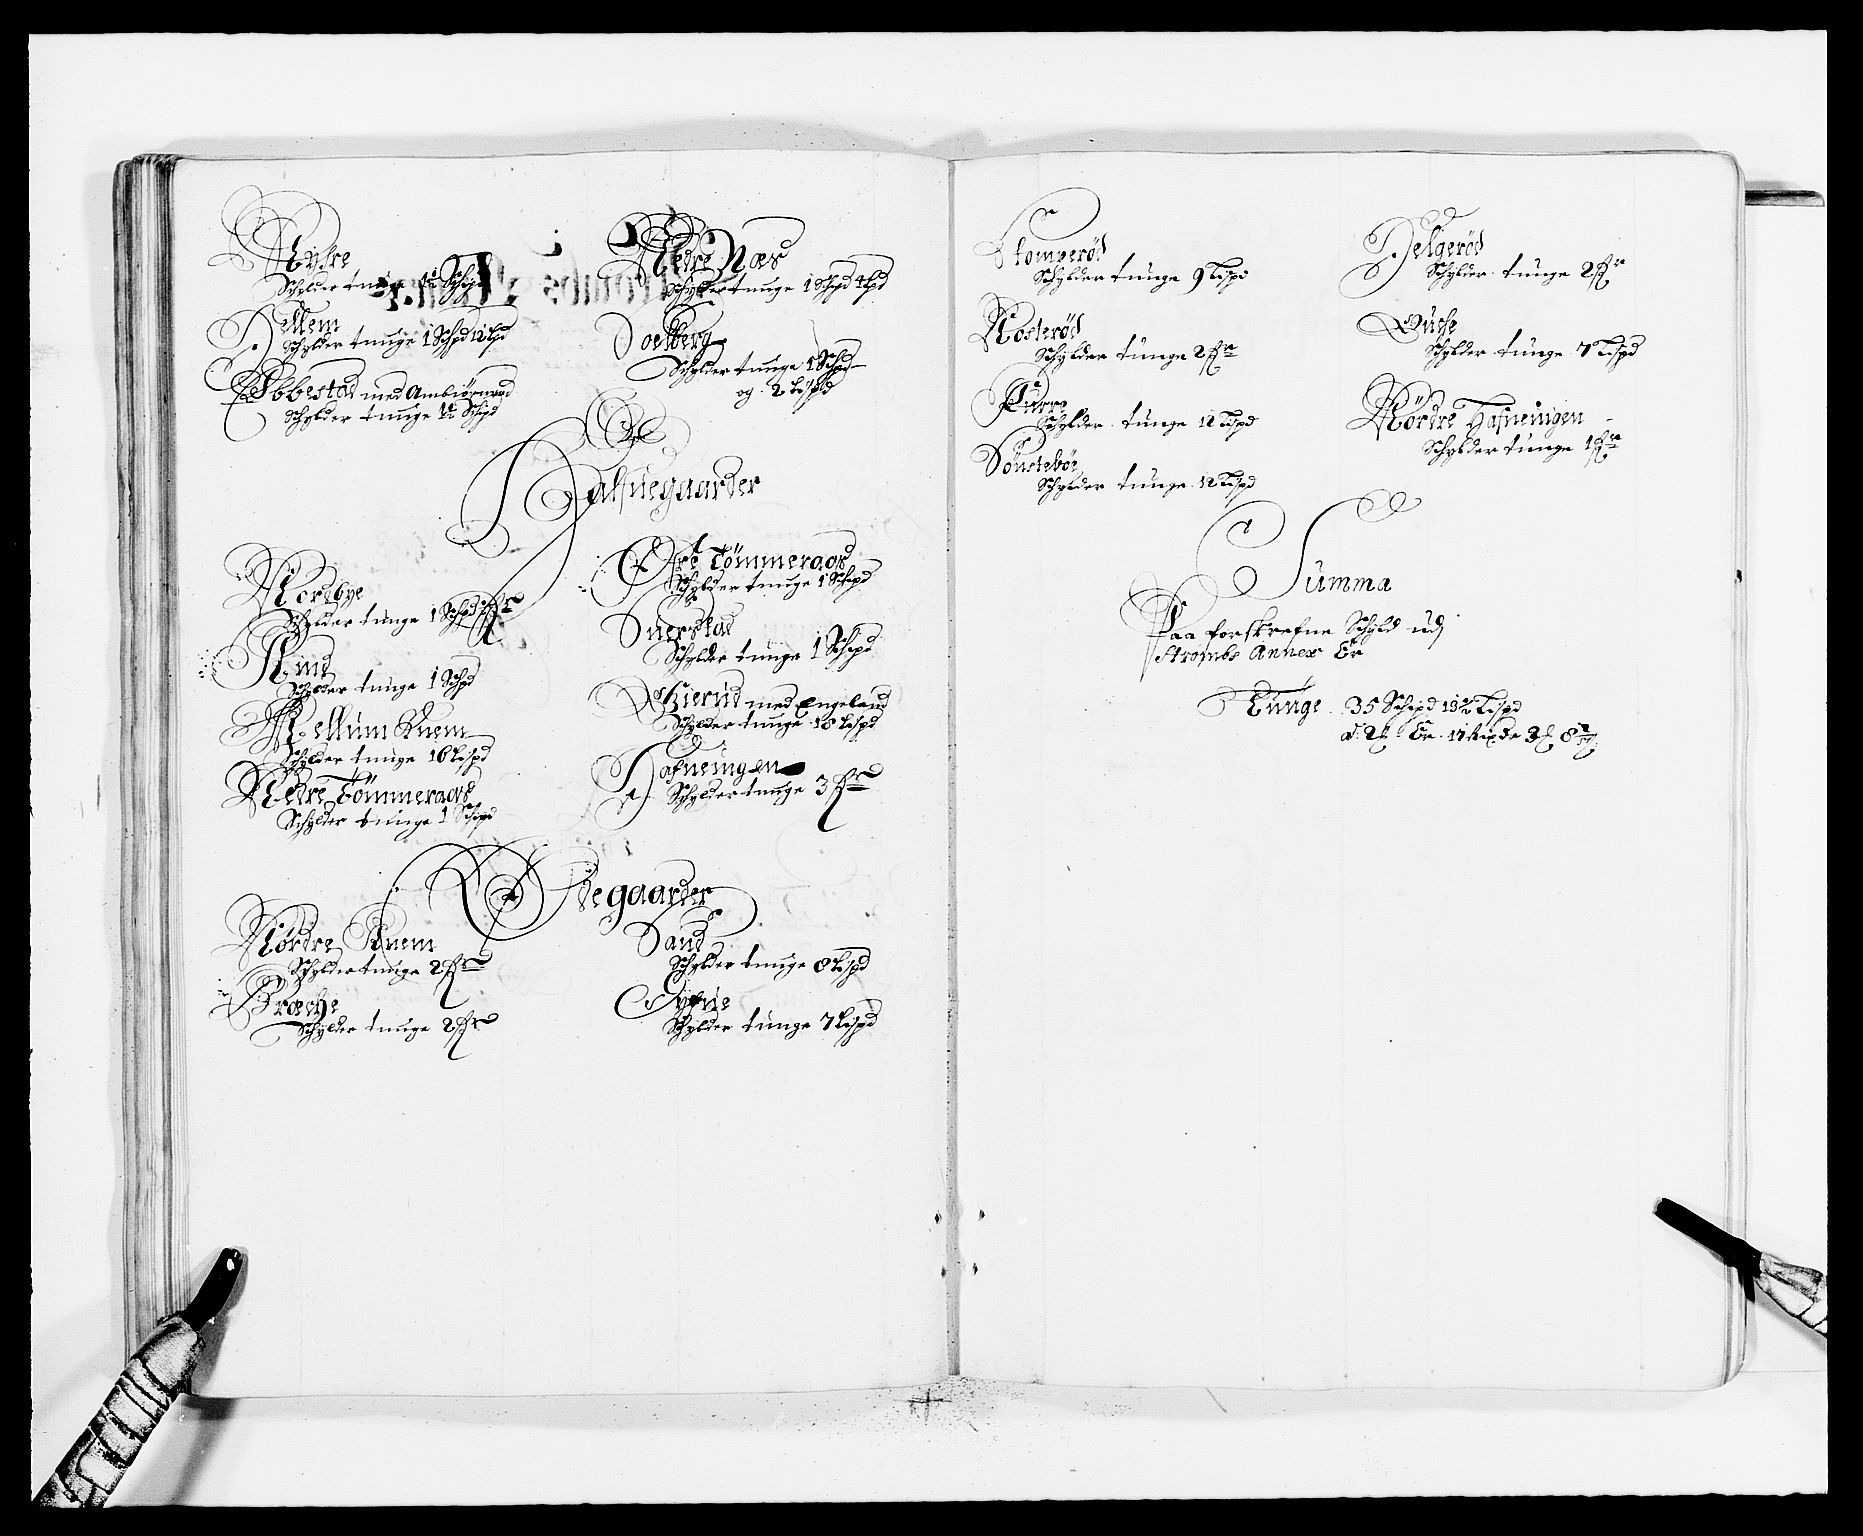 Rysre
Schylder tunge 1½ Schpd
Hellem
Schylder tunge 1 Schpd 12 Lpd
Ebbestad med Ambiørnrud
Schylder tunge 1½ Schpd
Nedre Næs
Schylder tunge 1 Schpd 4 Lpd
Soelberg
Schylder tunge 1 Schpd
og 2 Lispd
Halfuegaarder
Nordbye
Schylder tunge 1 Schpd
Rud
Schylder tunge 1 Schpd
Mellum Knem
Schylder tunge 16 Lispd
Nedre Tömmeraas
Schylder tunge 1 Schpd
Öfre Tömmeraas
Schylder tunge 1 Schpd
Suerstad
Schylder tunge 1 Schpd
Gierud med Engelaud
Schylder tunge 18 Lispd
Hafneingen
Schylder tunge 3 fr
Ödegaarder
Nørdre Knem
Schylder tunge 2 fr
Bræche
Schylder tunge 2 fr
Sand
Schylder tunge 8 Lispd
Schylder tunge 7 Lispd
Stomperöd
Schylder tunge 9 Lispd
Kosteröd
Schylder tunge 2 fr
Furre
Schylder tunge 12 Lispd
Sönsteböe
Schylder tunge 12 Lispd
Helgeröd
Schylder tunge 2 fr
Schylder tunge 7 Lispd
Nördre Hafneingen
Schylder tunge 1 fr
Summa
Paa forskrefne Schyld udj
Strombs Annex Er
Tunge 35 Schpd 13½ Lispd
Er 17 Rixdr 3 8